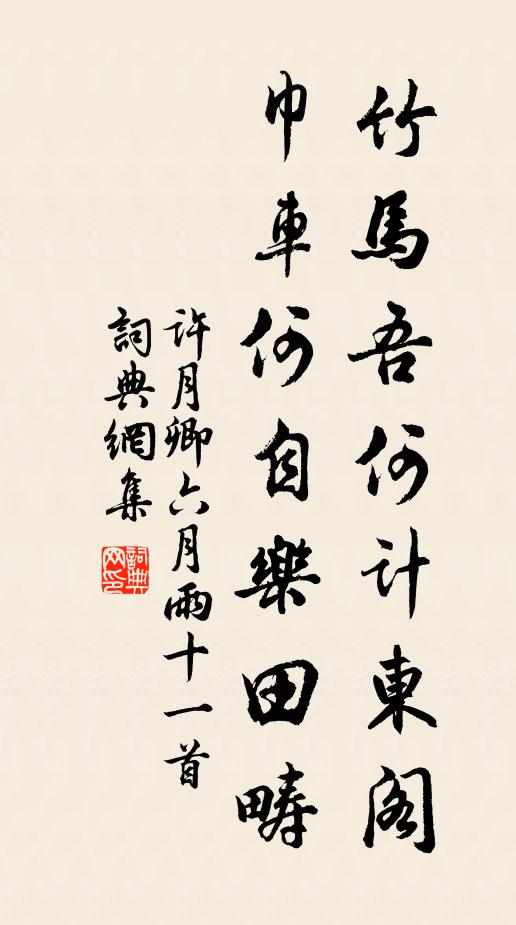 竹馬吾何計東閣
巾車何自樂田疇
許月卿六月雨十一首
詞典網集
詞典网印